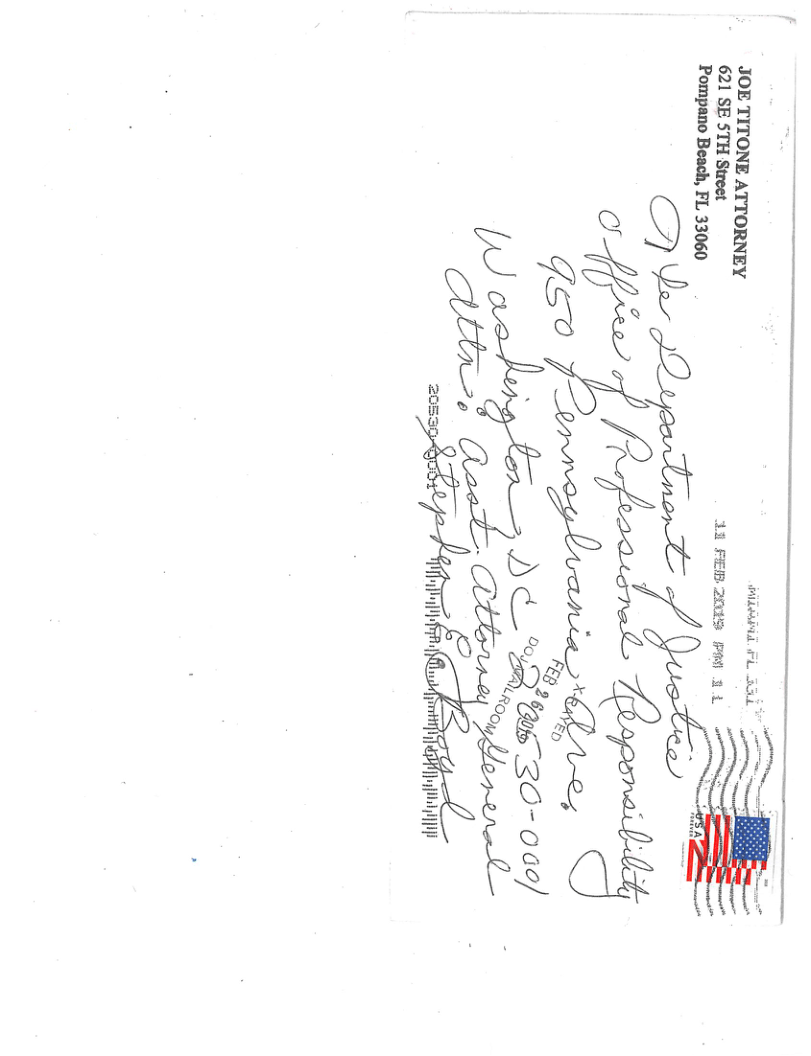 JOE TITONE ATTORNEY
621 SE 5TH Street
Pompano Beach, FL 33060
MIAMI FL 331
11 FEB 2019 PM 1 L
USA
FOREVER
The Department of Justice
Office of Professional Responsibility
950 Pennsylvania Ave.
Washington, DC 20530-0001
Attn: Asst. Attorney General
Stephen E. Boyd
X-RAYED
FEB 26
DOJ MAILROOM
20530-0001